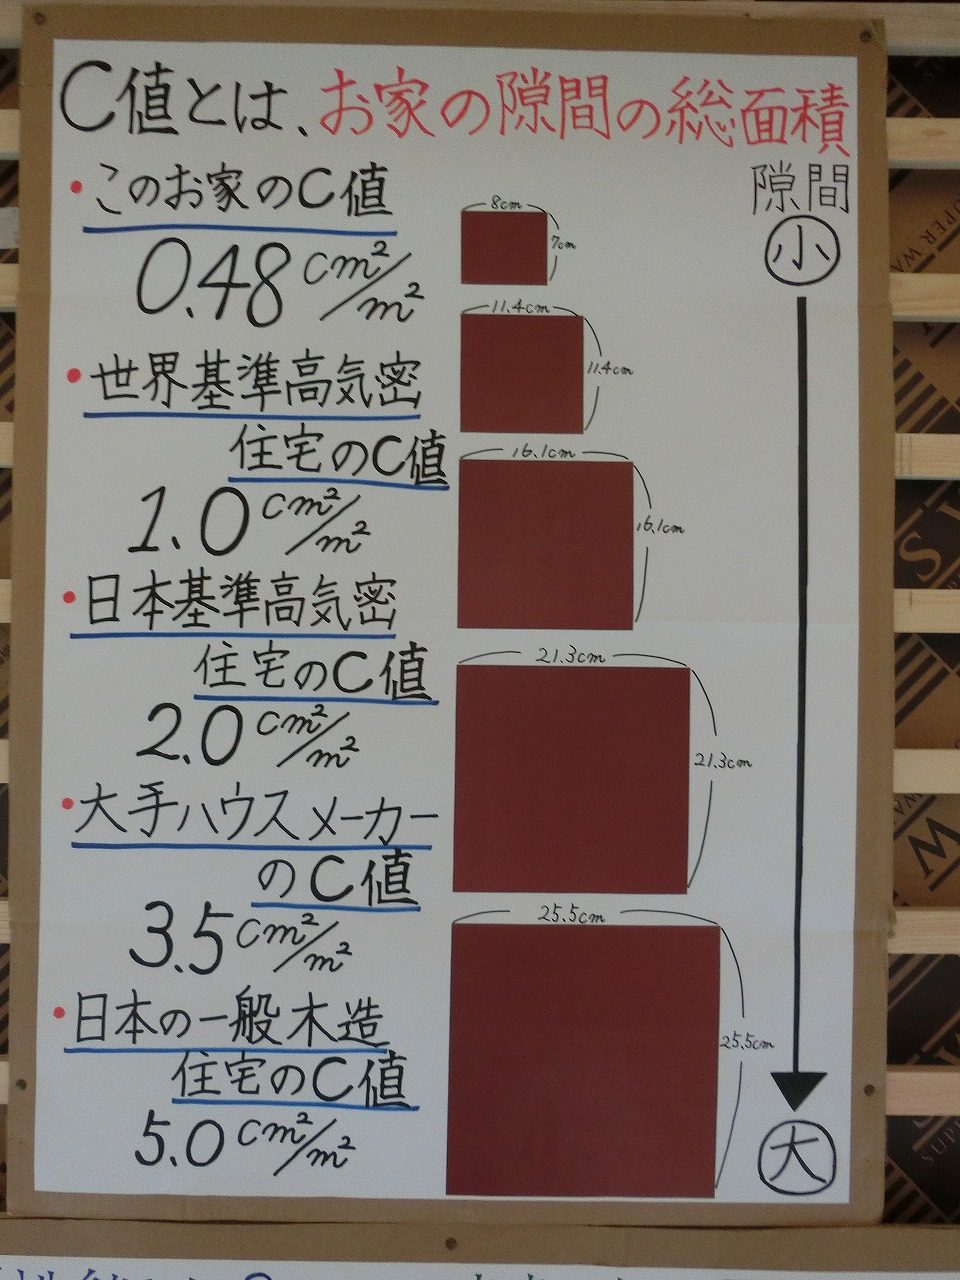 C値とは、お家の隙間の総面積
・このお家のC値
0.48 cm²/m²
8cm
7cm
隙間
小
・世界基準高気密
住宅のC値
1.0 cm²/m²
11.4cm
11.4cm
・日本基準高気密
住宅のC値
2.0 cm²/m²
16.1cm
16.1cm
・大手ハウスメーカー
のC値
3.5 cm²/m²
21.3cm
21.3cm
・日本の一般木造
住宅のC値
5.0 cm²/m²
25.5cm
25.5cm
大